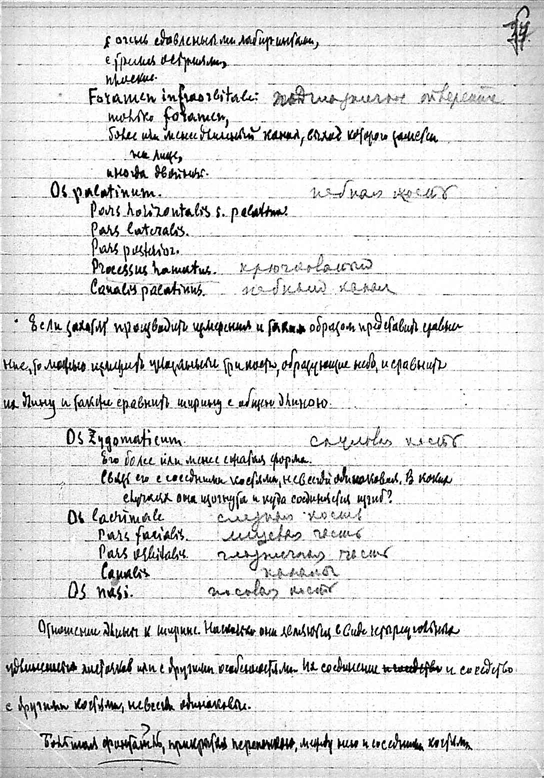 37.
с очень сдавленными лабиринтами,
с тремя остриями,
плоские.
Foramen infraorbitale: подглазничное отверстие
только foramen,
более или менее длинный канал, выход которого заметен
на лице,
иногда двойной.
Os palatinum. небная кость
Pars horizontalis s. palatina.
Pars lateralis.
Pars posterior.
Processus hamatus. крючковатый
Canalis palatinus. небный канал
Если захотят производить измерения и таким образом представить сравне-
ние, то можно измерить указанные три кости, образующие небо, и сравнить
их длину и также сравнить ширину с общею длиною.
Os Zygomaticum. скуловая кость
Его более или менее сжатая форма.
Связь его с соседними костями, не всегда одинаковая. В каких
случаях она изогнута и куда соединяется изгиб?
Os lacrimale слезная кость
Pars facialis. лицевая часть
Pars orbitalis. глазничная часть
Canalis каналы
Os nasi. носовая кость
Отношение длины к ширине. Насколько они являются в виде четыреугольных
удлиненных листочков или с другими особенностями. Их соединение и соседство
с другими костями, не всегда одинаковое.
Большая фонтанель, прикрытая перепонкою, между нею и соседними костями
?